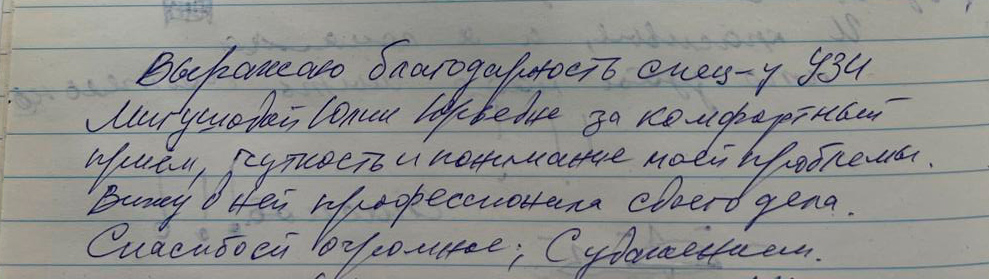 Выражаю благодарность спец-у УЗИ
Мигушовой Юлии Юрьевне за комфортный
прием, чуткость и понимание моей проблемы.
Вижу в ней профессионала своего дела.
Спасибо ей огромное; С уважением.